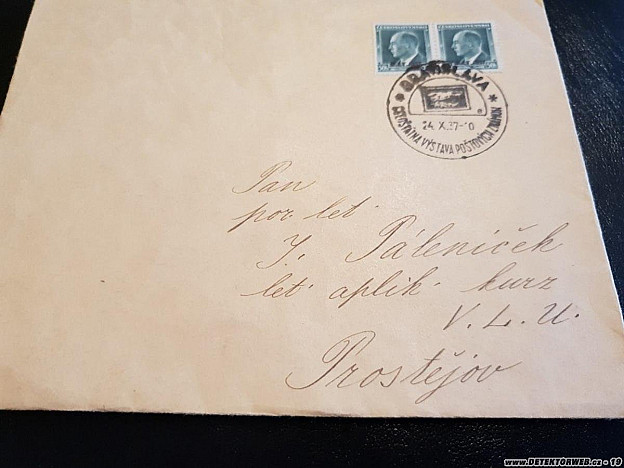 ČESKOSLOVENSKO ČESKOSLOVENSKO
BRATISLAVA
24.X.37-10
CELOŠTÁTNA VÝSTAVA POŠTOVÝCH ZNÁMOK
Pan
por. let.
J. Páleníček
let. aplik. kurz
V. L. U.
Prostějov
www.DETEKTORWEB.cz - 19